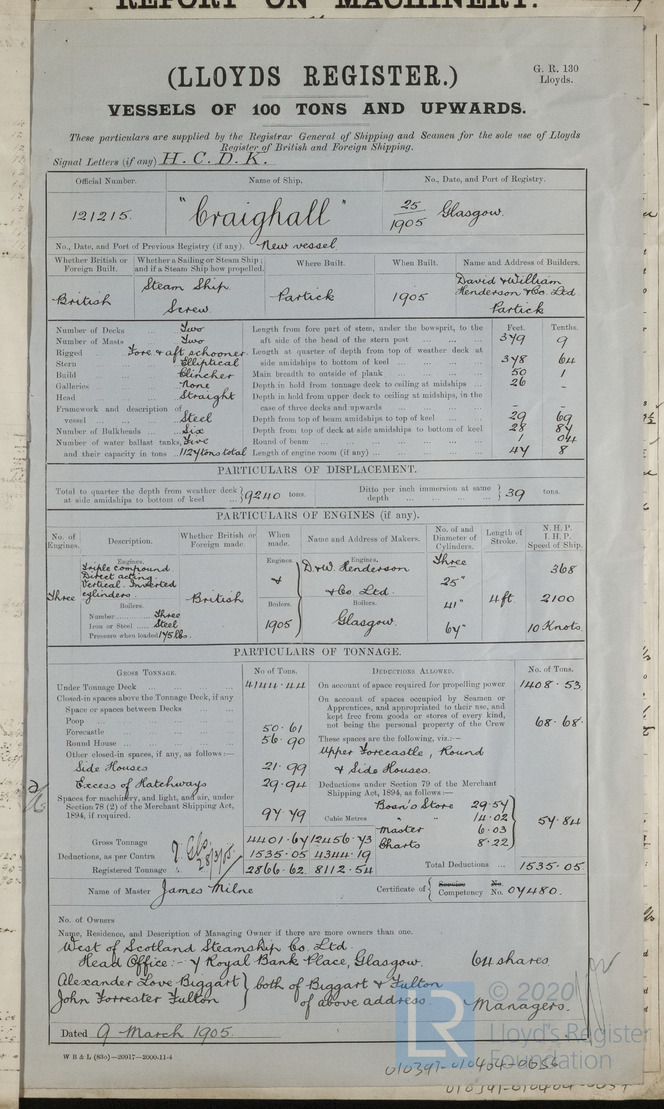 REPORT ON MACHINERY.
(LLOYDS REGISTER.)
G. R. 130
Lloyds.
VESSELS OF 100 TONS AND UPWARDS.
These particulars are supplied by the Registrar General of Shipping and Seamen for the sole use of Lloyds
Register of British and Foreign Shipping.
Signal Letters (if any) H. C. D. K.
Official Number. Name of Ship. No., Date, and Port of Registry.
121215. "Craighall" 25/1905 Glasgow.
No., Date, and Port of Previous Registry (if any). New vessel
Whether British or Foreign Built. Whether a Sailing or Steam Ship; and if a Steam Ship how propelled. Where Built. When Built. Name and Address of Builders.
British Steam Ship Screw Partick 1905 David & William Henderson & Co. Ltd Partick
Feet. Tenths.
Number of Decks ... Two Length from fore part of stem, under the bowsprit, to the
Number of Masts ... Two aft side of the head of the stern post ... 379 9
Rigged ... Fore & aft schooner. Length at quarter of depth from top of weather deck at
Stern ... Elliptical side amidships to bottom of keel ... 378 64
Build ... Clincher Main breadth to outside of plank ... 50 1
Galleries ... None Depth in hold from tonnage deck to ceiling at midships ... 26 -
Head ... Straight Depth in hold from upper deck to ceiling at midships, in the
Framework and description of case of three decks and upwards ... - -
vessel ... Steel Depth from top of beam amidships to top of keel ... 29 69
Number of Bulkheads ... Six Depth from top of deck at side amidships to bottom of keel 28 84
Number of water ballast tanks, Five Round of beam ... 1 04
and their capacity in tons .. 1124 tons total Length of engine room (if any) ... 47 8
PARTICULARS OF DISPLACEMENT.
Total to quarter the depth from weather deck at side amidships to bottom of keel ... } 9240 tons. Ditto per inch immersion at same depth ... } 39 tons.
PARTICULARS OF ENGINES (if any).
No. of Engines. Description. Whether British or Foreign made. When made. Name and Address of Makers. No. of and Diameter of Cylinders. Length of Stroke. N. H. P. I. H. P. Speed of Ship.
Engines. Engines. Engines. Three
Triple compound D & W. Henderson 368
Direct acting
Vertical Inverted & & Co Ltd. 25"
cylinders.
Three Boilers. British Boilers. Boilers. 41" 4 ft. 2100
Number ... Three
Iron or Steel ... Steel 1905 Glasgow.
Pressure when loaded 175 lbs. 67" 10 Knots
PARTICULARS OF TONNAGE.
GROSS TONNAGE. No of Tons. DEDUCTIONS ALLOWED. No. of Tons.
Under Tonnage Deck ... 4144.44 On account of space required for propelling power 1408.53
Closed-in spaces above the Tonnage Deck, if any On account of spaces occupied by Seamen or
Space or spaces between Decks ... Apprentices, and appropriated to their use, and
Poop ... kept free from goods or stores of every kind,
Forecastle ... 50.61 not being the personal property of the Crew 68.68.
Round House ... 56.90 These spaces are the following, viz.:—
Other closed-in spaces, if any, as follows:— Upper Forecastle, Round
Side Houses 21.99 & Side Houses.
Excess of Hatchways 29.94 Deductions under Section 79 of the Merchant
Spaces for machinery, and light, and air, under Shipping Act, 1894, as follows:—
Section 78 (2) of the Merchant Shipping Act, Bosn's Store 29.57
1894, if required. 97 79 Cubic Metres " " 14.02 57.84
Master 6.03
Gross Tonnage 4401.67 12456.73 Charts 8.22
Deductions, as per Contra 1535.05 4344.19
Registered Tonnage 2866.62 8112.54 Total Deductions ... 1535.05
28/3/05
Name of Master James Milne Certificate of { Service No. Competency No. 04480.
No. of Owners
Name, Residence, and Description of Managing Owner if there are more owners than one.
West of Scotland Steamship Co. Ltd.
Head Office:- 7 Royal Bank Place, Glasgow. 64 shares
Alexander Love Biggart } both of Biggart & Fulton
John Forrester Fulton } of above address. Managers.
Dated 9 March 1905.
W B & L (83o)—20917—2000-11-4
LR
© 2020
Lloyd's Register
Foundation
010397-010404-0056